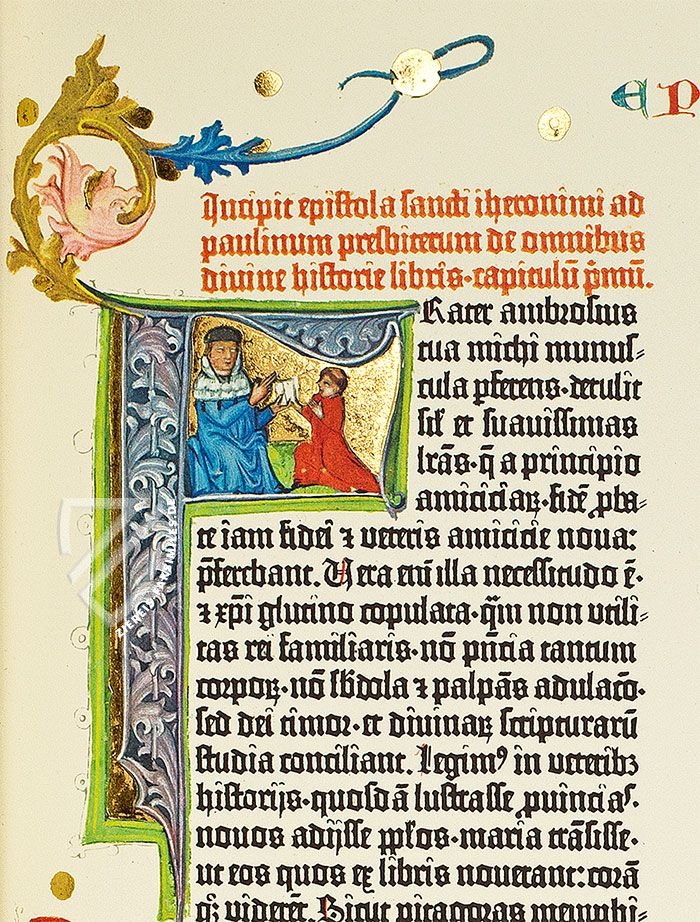 EP
Incipit epistola sancti iheronimi ad
paulinum presbiterum de omnibus
divine historie libris·capitulū p̄mū.
Frater ambrosius
tua michi munus-
cula pferens·detulit
sił et suavissimas
lrās·q̄ a principio
amicicia⁊ꝝ·fidē ꝓba-
te iam fidei ⁊ veteris amicicie nova:
p̄ferebant. Vera em̄ illa necessitudo ē·
⁊ xp̄i glutino copulata·q̄m non utili-
tas rei familiaris·nō pn̄cia tantum
corpoꝝ·nō sb̄dola ⁊ palpās adulacō·
sed dei timor·et divinaꝝ scripturarū
studia conciliant. Legimꝰ in veteribꝫ
historijs·quosdā lustrasse ꝓuinciaˢ.
novos adijsse pp̄los·maria trāsisse·
ut eos quos ex libris noverant: corā
qꝫ viderēt. Sicut pitagoras memphi-